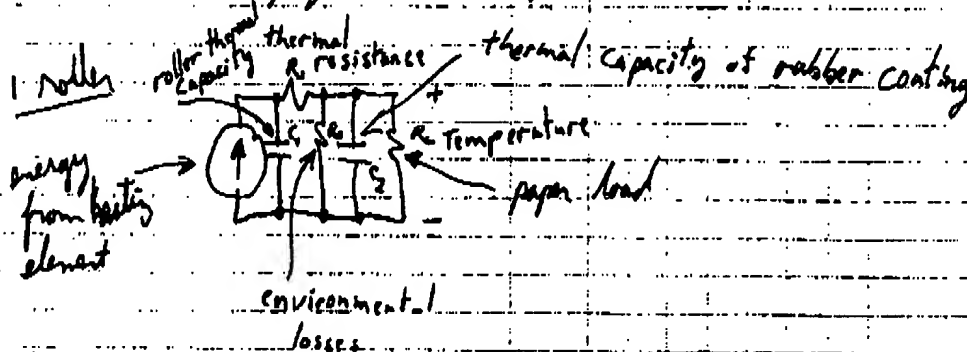 1 roller
roller thermal capacity
thermal resistance
R₁
thermal capacity of rubber coating
+
C₁
R₂
C₂
Temperature
energy from heating element
paper load
−
environmental losses